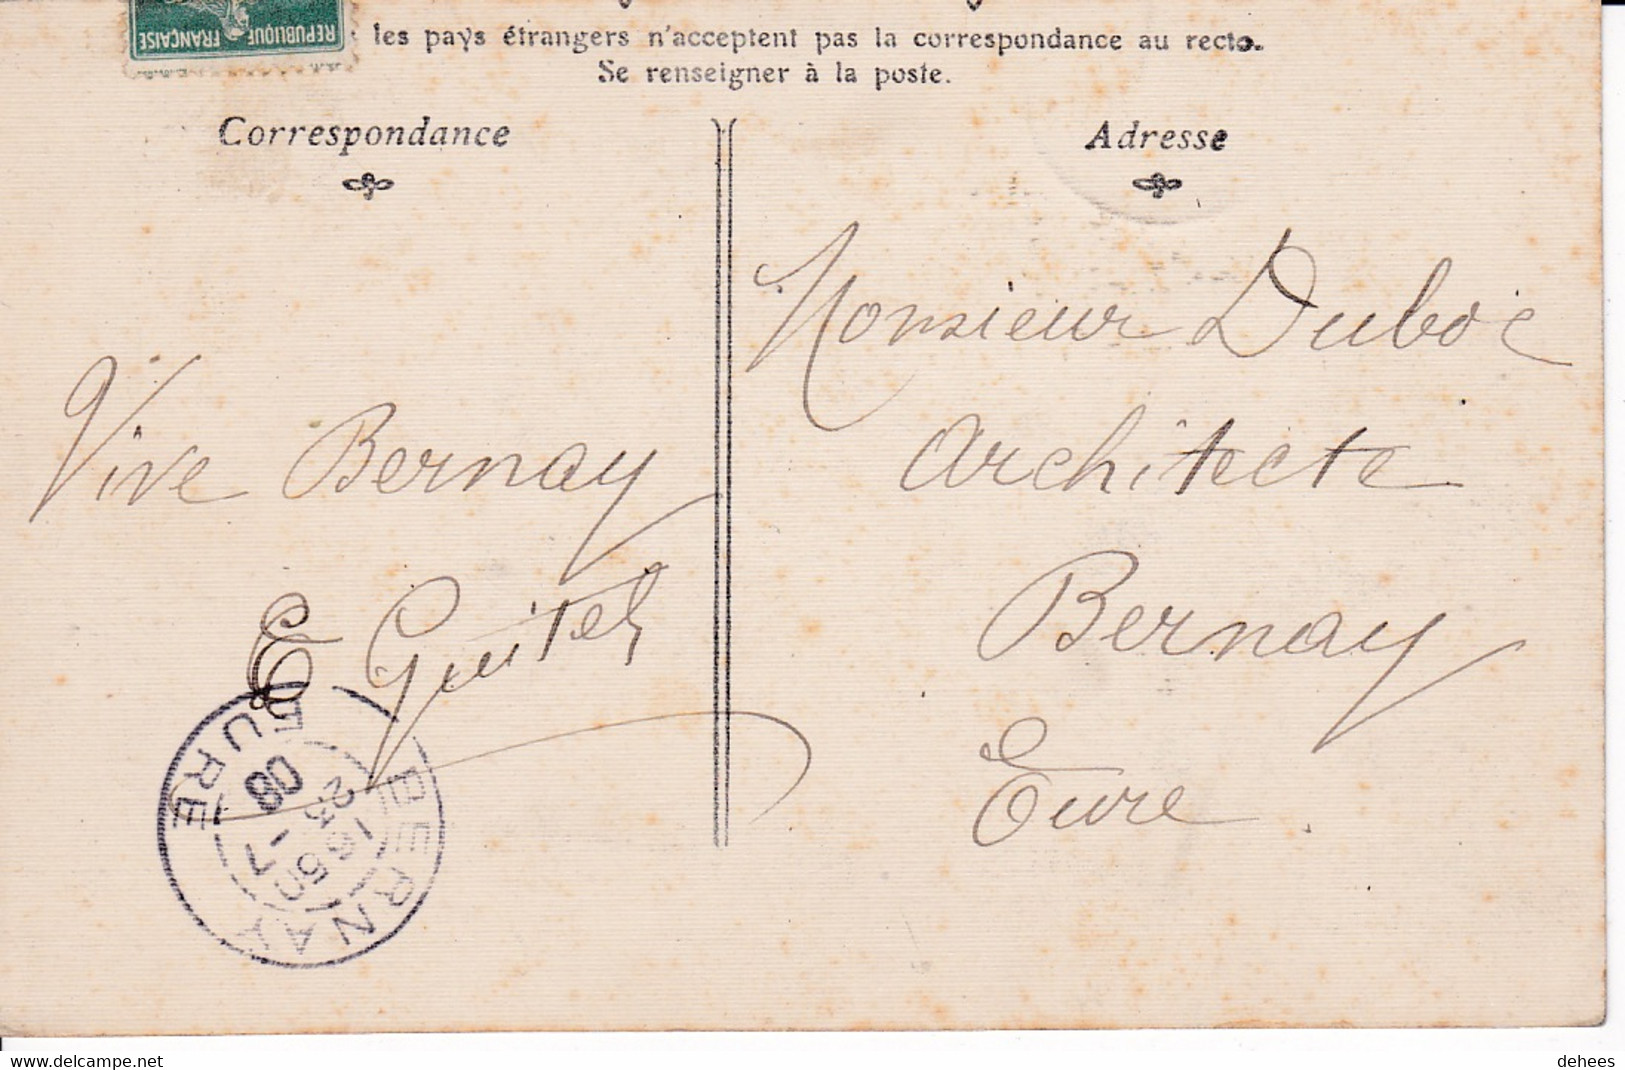 REPUBLIQUE FRANÇAISE
les pays étrangers n'acceptent pas la correspondance au recto.
Se renseigner à la poste.
Correspondance
Adresse
Monsieur Duboc
Architecte
Bernay
Eure
Vive Bernay
E Guitel
BERNAY
EURE
23 - 7
16 50
08
delcampe.net
dehees